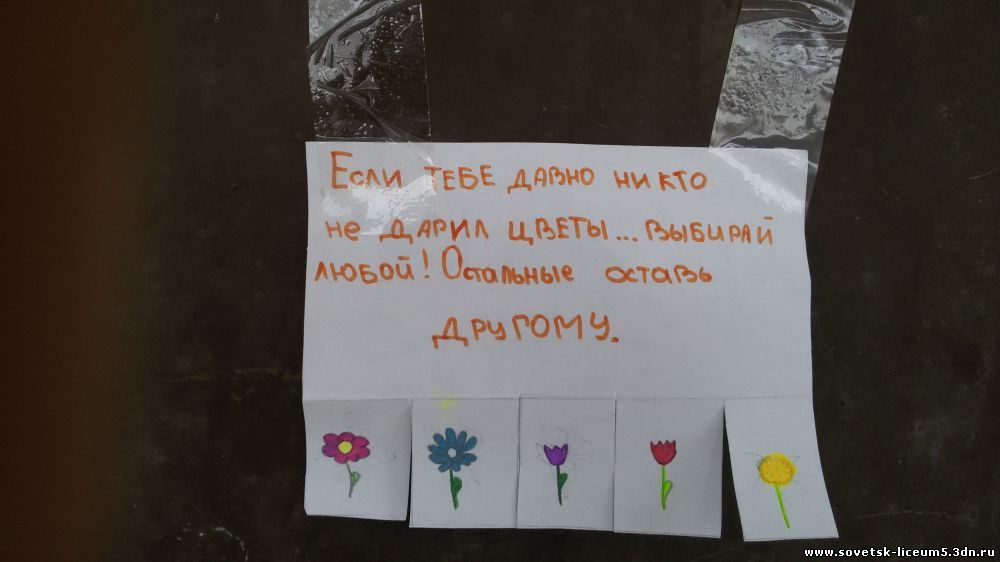 Если тебе давно никто
не дарил цветы... выбирай
любой! Остальные оставь
другому.
www.sovetsk-liceum5.3dn.ru